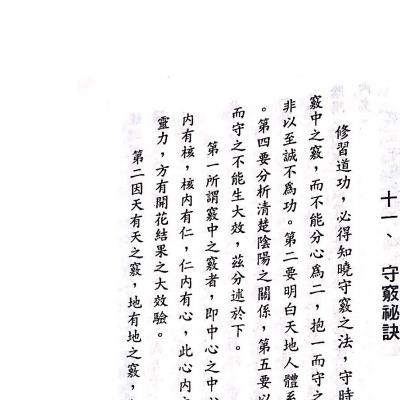 十一、守竅祕訣
修習道功，必得知曉守竅之法，守時
竅中之竅，而不能分心為二，抱一而守之
非以至誠不為功。第二要明白天地人體系
。第四要分析清楚陰陽之關係，第五要以
而守之不能生大效，茲分述於下。
第一所謂竅中之竅者，即中心之中
內有核，核內有仁，仁內有心，此心內
靈力，方有開花結果之大效驗。
第二因天有天之竅，地有地之竅，